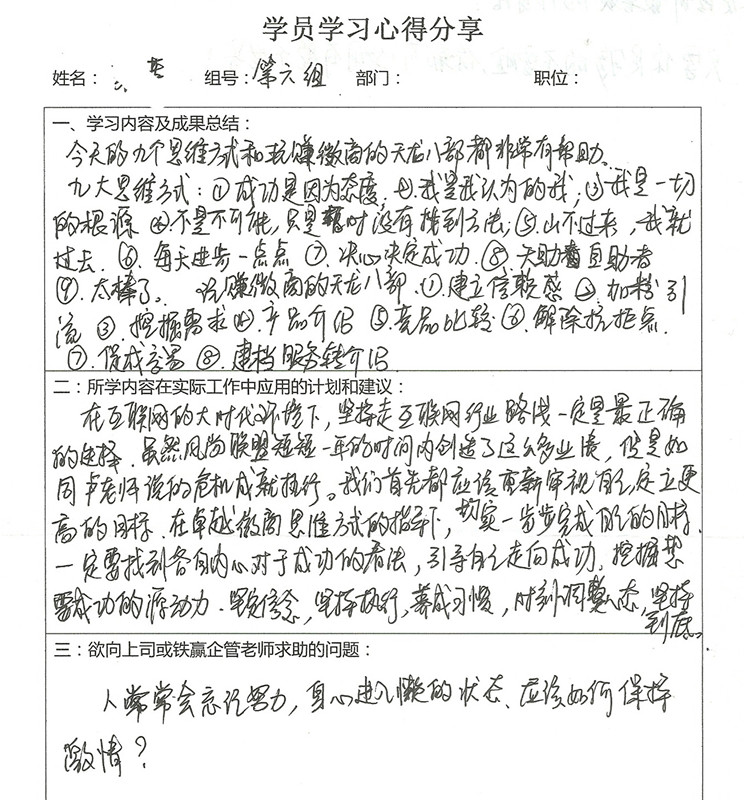 学员学习心得分享
姓名： 组号：第六组 部门： 职位：
一、学习内容及成果总结：
今天的九个思维方式和玩赚微商的天龙八部都非常有帮助。
九大思维方式：①成功是因为态度.②.我是我认为的我；③我是一切
的根源 ④.不是不可能,只是暂时没有找到方法;⑤.山不过来，我就
过去.⑥.每天进步一点点 ⑦.决心决定成功.⑧.天助自助者
⑨.太棒了。 玩赚微商的天龙八部.①.建立信赖感 ②.加粉引
流 ③.挖掘需求 ④.产品介绍 ⑤.竞品比较 ⑥.解除抗拒点.
⑦.促成交易 ⑧.建档服务转介绍
二：所学内容在实际工作中应用的计划和建议：
在互联网的大时代环境下，坚持走互联网行业路线一定是最正确
的选择.虽然风尚联盟短短一年的时间内创造了这么多业绩，但是如
同卢老师说的危机成就执行。我们首先都应该重新审视自己,定立更
高的目标.在卓越微商思维方式的指导下，切实一步步完成自己的目标.
一定要找到各自内心对于成功的看法，引导自己走向成功.挖掘想
要成功的源动力.坚定信念，坚持执行，养成习惯，时刻调整心态,坚持
到底。
三：欲向上司或铁赢企管老师求助的问题：
人常常会忘记努力，身心进入懒的状态、应该如何保持
激情？